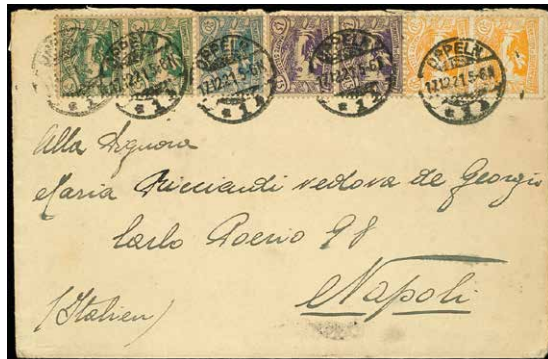 OPPELN OPPELN OPPELN
17.12.21.5-6N 17.12.21.5-6N 17.12.21.5-6N
Alla Signora
Maria Ricciardi vedova de Georgio
Carlo Poerio 98
Napoli
(Italien)